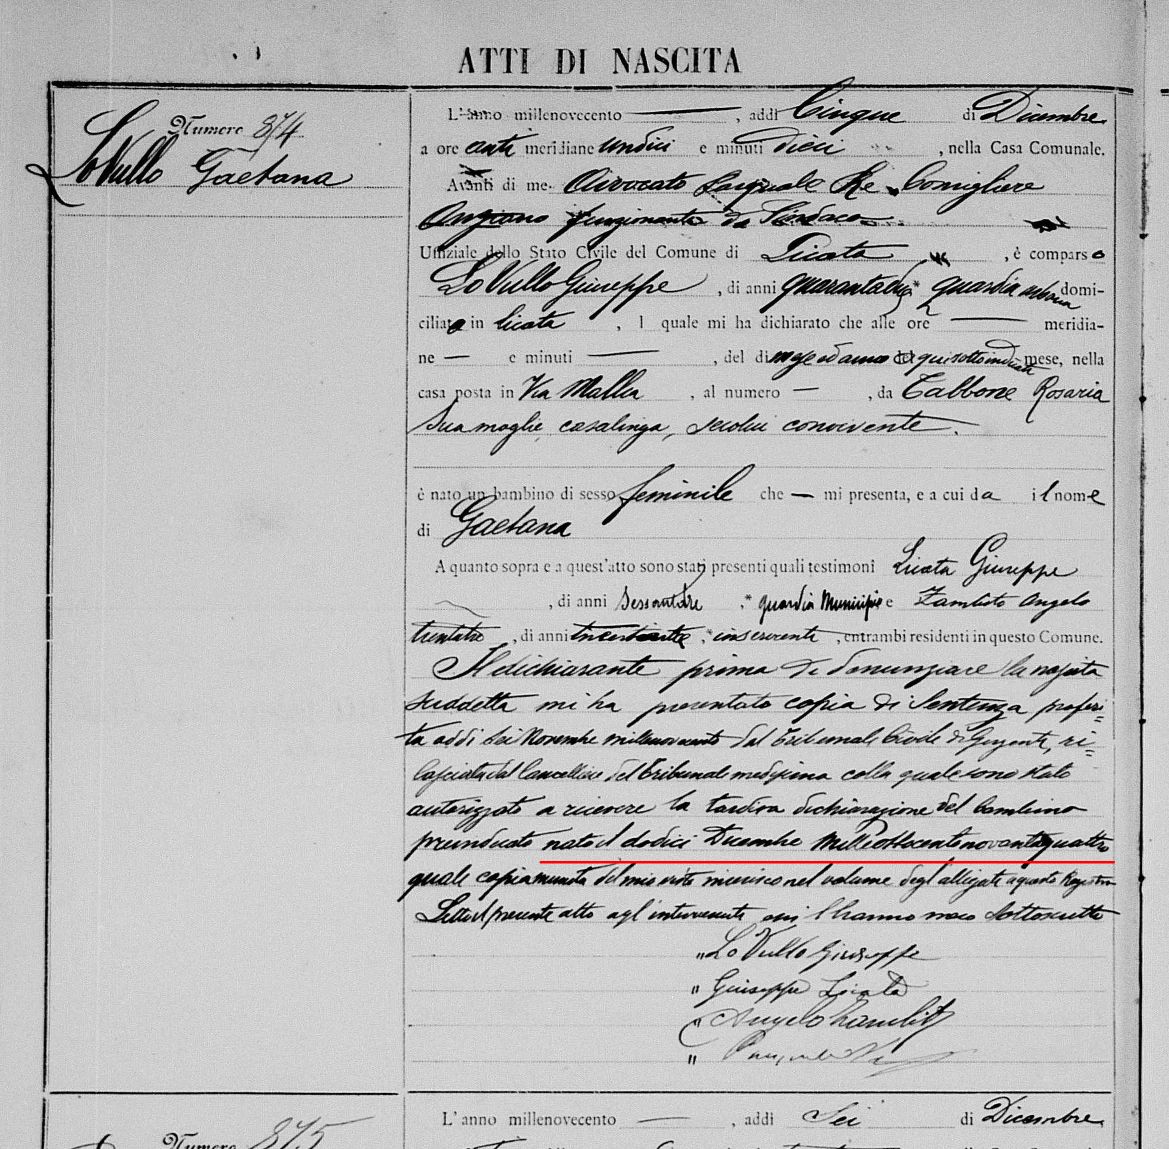 ATTI DI NASCITA
Numero 874
Lo Vullo Gaetana
L'anno millenovecento — , addì Cinque di Dicembre
a ore anti meridiane undici e minuti dieci , nella Casa Comunale.
Avanti di me Avvocato Pasquale Re Consigliere
Anziano funzionante da Sindaco
Uffiziale dello Stato Civile del Comune di Licata , è comparso
Lo Vullo Giuseppe , di anni quarantadue guardia urbana domi-
ciliato in Licata , l quale mi ha dichiarato che alle ore — meridia-
ne — e minuti — , del dì mese ed anno qui sotto indicati mese, nella
casa posta in Via Malla , al numero — , da Tabbone Rosaria
Sua moglie, casalinga, secolui convivente.
è nato un bambino di sesso feminile che — mi presenta, e a cui da il nome
di Gaetana
A quanto sopra e a quest'atto sono stati presenti quali testimoni Licata Giuseppe
, di anni Sessantatre , guardia Municipale e Zambito Angelo
trentatre , di anni , inserviente , entrambi residenti in questo Comune.
Il dichiarante prima di denunziare la nascita
suddetta mi ha presentato copia di Sentenza proferi=
ta addì sei Novembre millenovecento dal Tribunale Civile di Girgenti, ri=
lasciata dal Cancelliere del Tribunale medesimo colla quale sono stato
autorizzato a ricevere la tardiva dichiarazione del bambino
preindicato nato il dodici Dicembre Milleottocentonovantaquattro
quale copia munita del mio visto inserisco nel volume degl'allegati a questo Registro
Letto il presente atto agl'intervenuti, essi l'hanno meco sottoscritto
" Lo Vullo Giuseppe
" Giuseppe Licata
" Angelo Zambito
"
L'anno millenovecento — , addì Sei di Dicembre
Numero 875